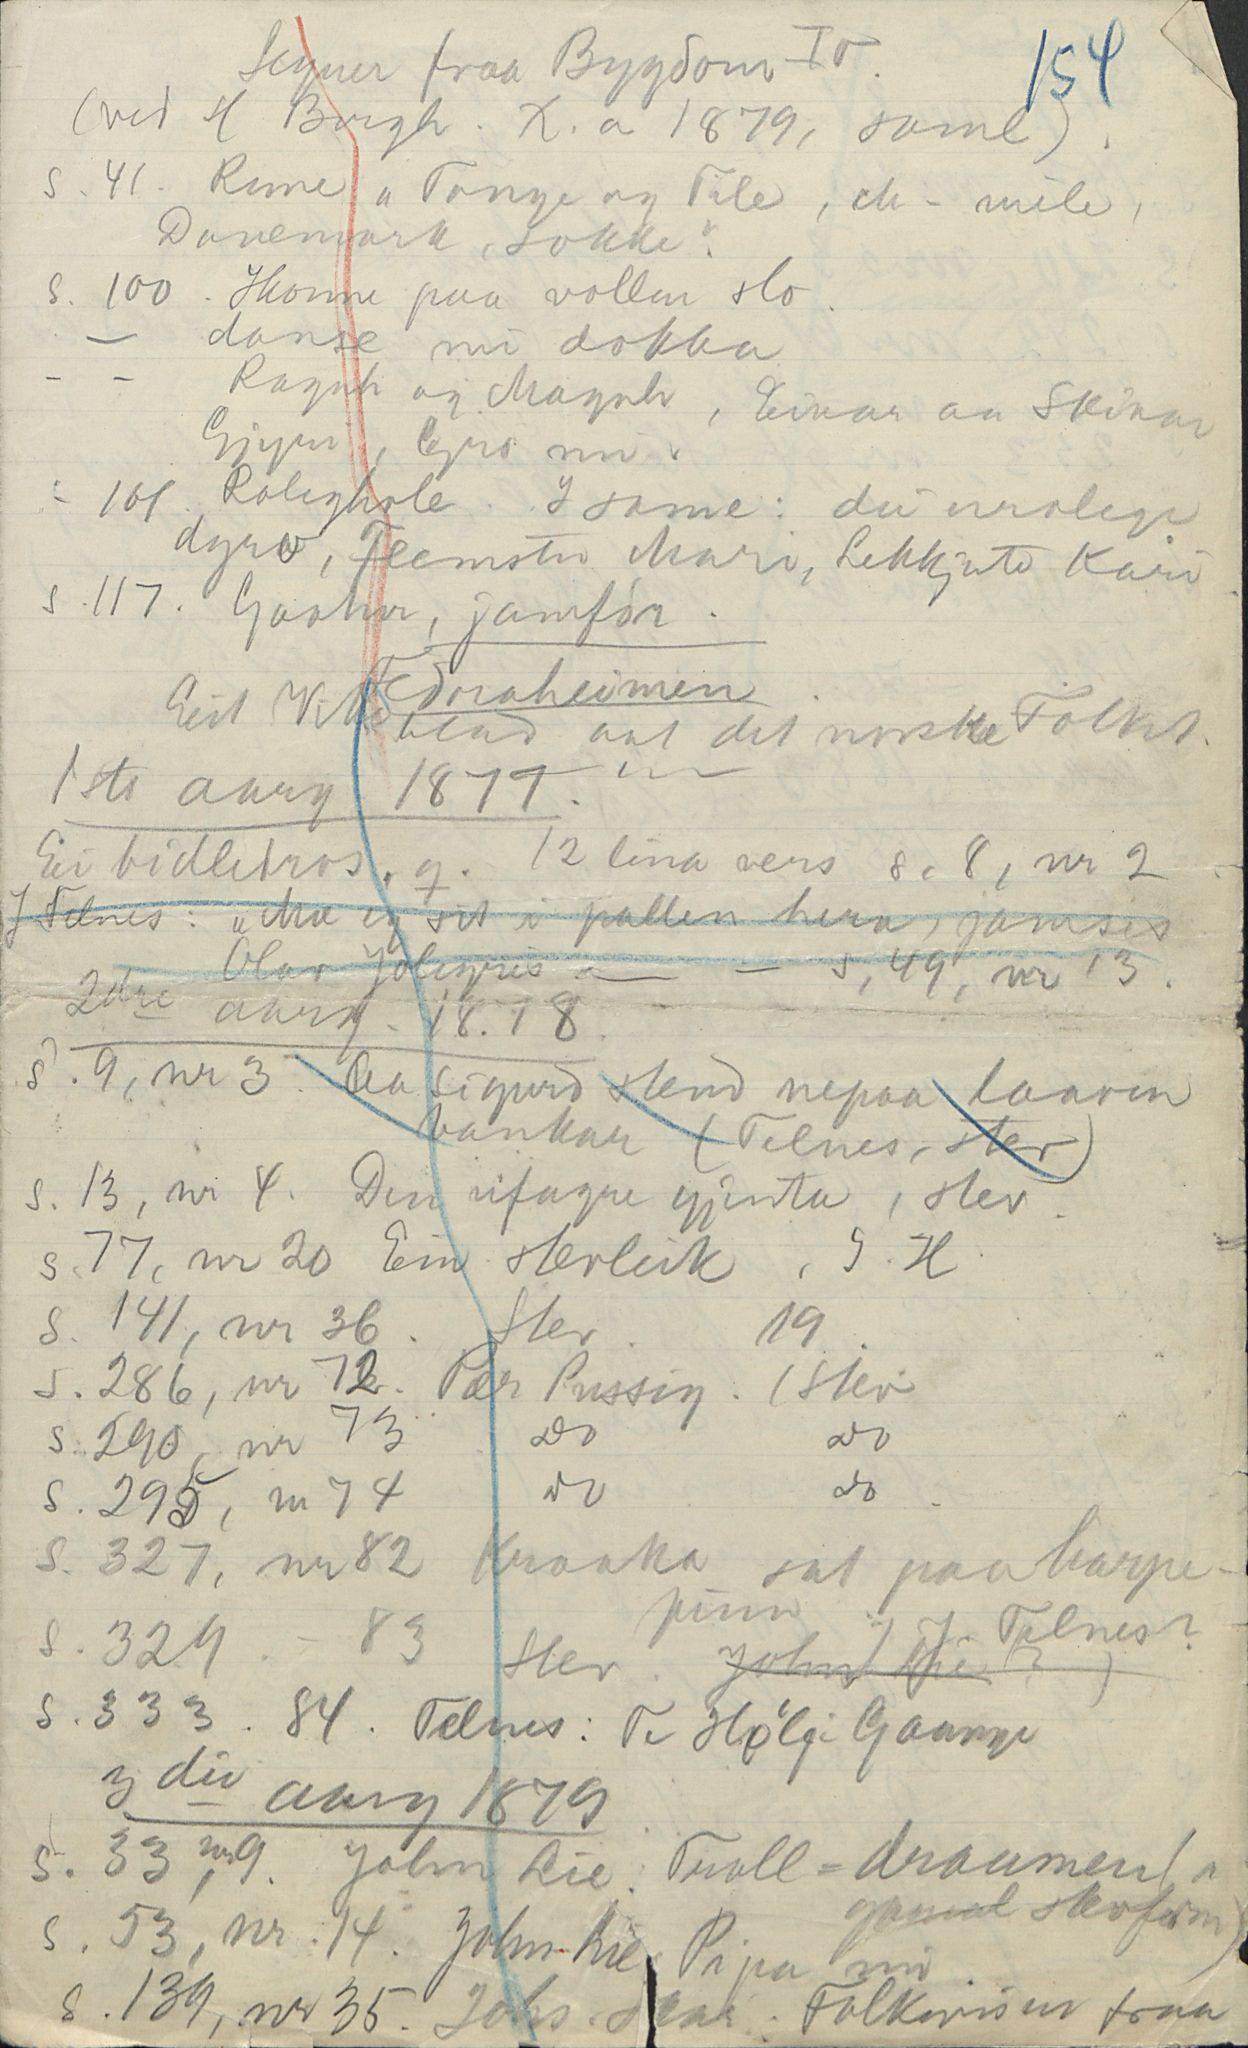 154
Segner fraa Bygdom IV.
(ved H Bergh. X.a 1879, saml)
s. 41. Rime „Tonge og Tile, ch - mile,
Danemark, sokke".
s. 100. Homme paa vollen slo.
— danse mi dokka
- - Ragnh og Magnh, Einar aa Skinar
Gjyri, Gyro mi.
- 101. Roleghole. I same: dei urolege
dyro, Fremste Mari, Lekkjete Kari
s. 117. Gaatur, jamfør.
Fedraheimen.
Eit Vikeblad aat det norske Folket.
1ste aarg 1877.
Ein bidletros. g. 12 lina vers s. 8, nr 2
J Telnes: „Mæ eg sit i pallen hera, jamsis
Olav Jølegris — — s, 49, nr 13.
2dre aarg. 1878.
s. 9, nr 3. Aa Sigurd stend nepaa laaven
bankar (Telnes, stev)
s. 13, nr 4. Den vifagre gjenta, stev.
s. 77, nr 20 Ein stevleik, J. H
s. 141, nr 36. Stev. 19.
s. 286, nr 72. Per Pussig. (Stev
s. 290, nr 73 do do
s. 295, nr 74 do do.
s. 327, nr 82 Kraaka sat paa harpe-
pinn J. J. Telnes?
s. 329. - 83 Stev. John Lie?)
s. 333. 84. Telnes: Te Hølje Gaange
3die aarg 1879
s. 33, nr 9. John Lie: Troll=draumen (
gamal stevform)
s. 53, nr. 14. John Lie, Pipa mi
s. 139, nr 35. Johs. Skar: Folkevisur fraa